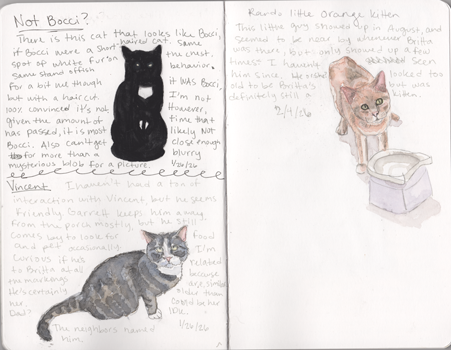 Not Bocci?
There is this cat that looks like Bocci,
if Bocci were a short haired cat. Same
spot of white fur on the chest,
same standoffish behavior.
For a bit we though it was Bocci,
but with a haircut. I'm not
100% convinced it's not. However,
given the amount of time that
has passed, it is most likely not
Bocci. Also can't get close enough
for more than a blurry
mysterious blob for a picture.
1/26/26
Vincent I haven't have a ton of
interaction with Vincent, but he seems
friendly. Garrett keeps him away
from the porch mostly, but he still
comes by to look for food
and pet occasionally. I'm
curious if he's related
to Britta at all because
markings are similar
He's certainly older than
her. Dad? Could be her
IDK.
The neighbors named
him.
1/26/26
Rando little orange kitten
This little guy showed up in August, and
seemed to be near by whenever Britta
was there, but only showed up a few
times? I haven't seen
him since. He looked too
old to be Britta's but was
definitely still a kitten.
2/4/26